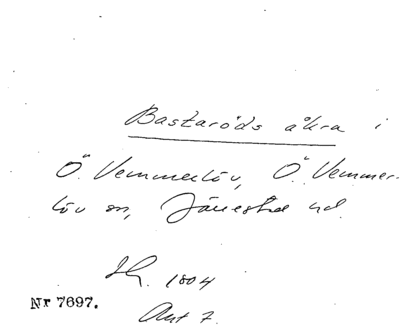 Bastaröds åkra i
Ö. Vemmerlöv, Ö. Vemmer-
löv sn, Järrestad hd.
Sk. 1804
Nr 7697.
Akt 7.